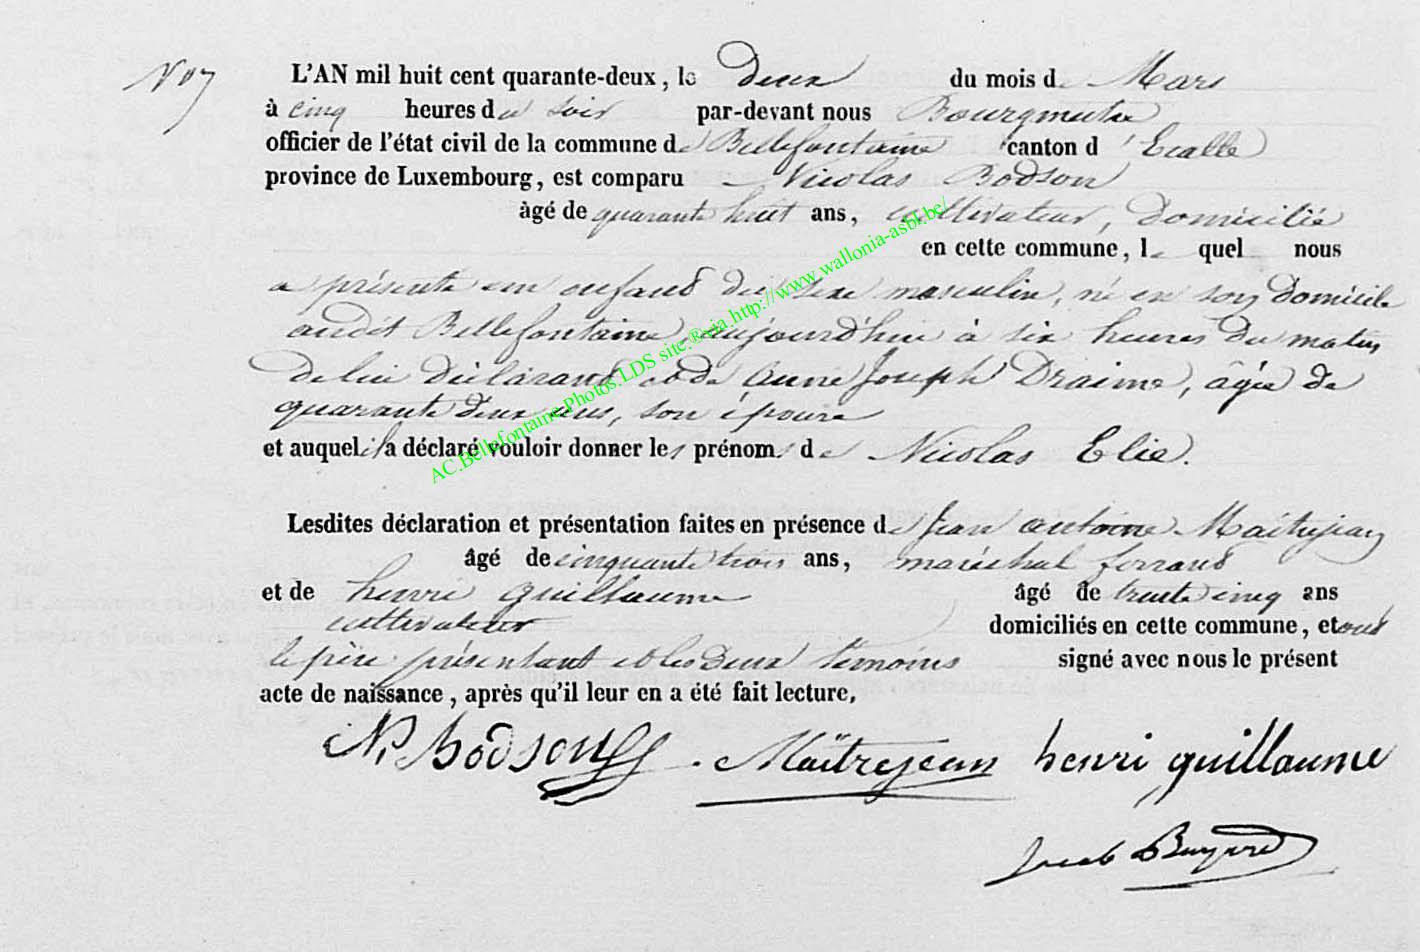 N° 7
L'AN mil huit cent quarante-deux, le deux du mois de Mars
à cinq heures du soir par-devant nous Bourgmestre
officier de l'état civil de la commune de Bellefontaine canton d'Etalle
province de Luxembourg, est comparu Nicolas Bodson
àgé de quarante huit ans, cultivateur, domicilié
en cette commune, le quel nous
a présenté un enfant du sexe masculin, né en son domicile
audit Bellefontaine, aujourd'hui à six heures du matin
de lui déclarant et de Anne Joseph Draime, âgée de
quarante deux ans, son épouse
et auquel il a déclaré vouloir donner les prénoms de Nicolas Elie.
Lesdites déclaration et présentation faites en présence de Jean antoine Maitrejean
âgé de cinquante trois ans, maréchal ferrant
et de henri guillaume âgé de trente cinq ans
cultivateur domiciliés en cette commune, et ont
le père présentant et les deux témoins signé avec nous le présent
acte de naissance, après qu'il leur en a été fait lecture,
N. Bodson Maîtrejean henri guillaume
Jacob
AC.Bellefontaine.Photos.LDS site.®ria.http://www.wallonia-asbl.be/